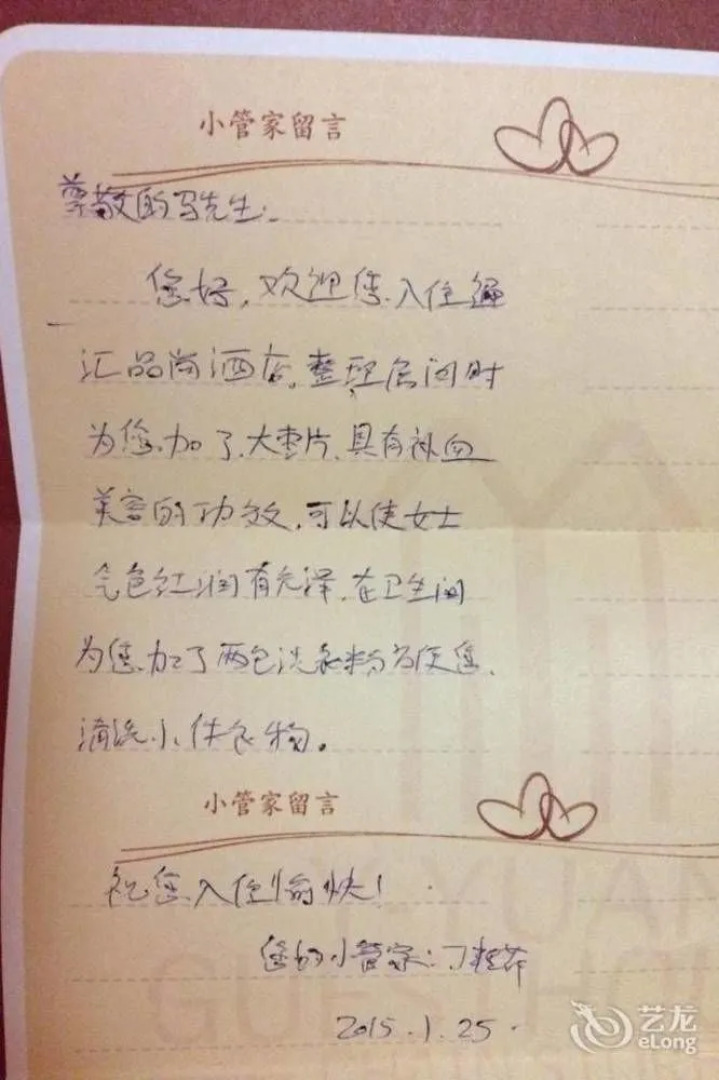 小管家留言
尊敬的马先生:
您好,欢迎您入住通
汇品尚酒店,整理房间时
为您加了大枣片,具有补血
美容的功效,可以使女士
气色红润有光泽,在卫生间
为您加了两包洗衣粉方便您
清洗小件衣物。
小管家留言
祝您入住愉快!
您的小管家:丁
2015.1.25.
YUAN
GUEST HO
艺龙
eLong